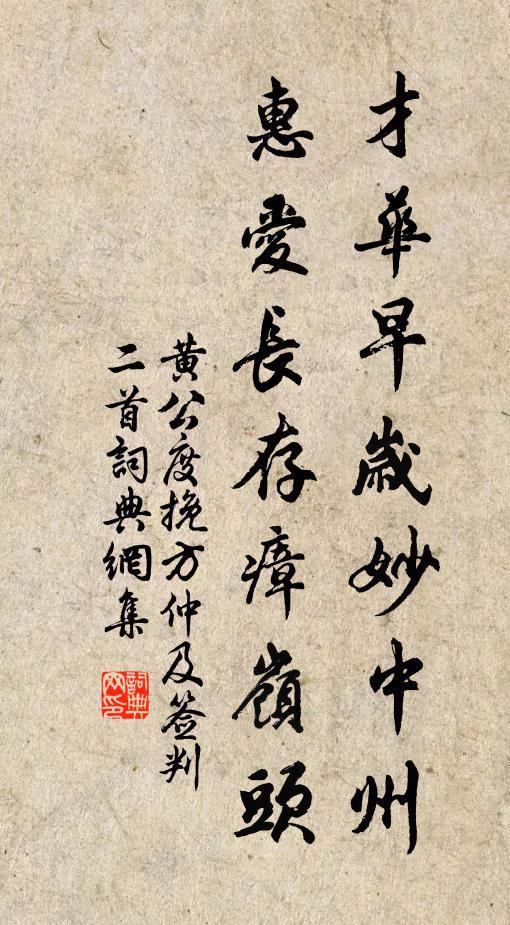 才華早歲妙中州
惠愛長存瘴嶺頭
黃公度挽方仲及簽判
二首詞典網集
詞典網印